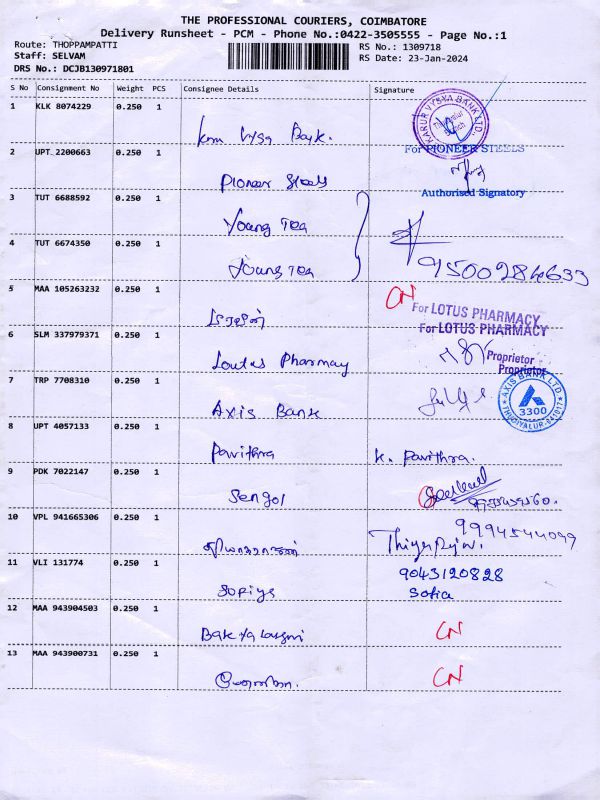 THE PROFESSIONAL COURIERS, COIMBATORE
Delivery Runsheet - PCM - Phone No.:0422-3505555 - Page No.:1
Route: THOPPAMPATTI
RS No.: 1309718
Staff: SELVAM
RS Date: 23-Jan-2024
DRS No.: DCJB130971801
S No Consignment No Weight PCS Consignee Details Signature
1 KLK 8074229 0.250 1
Vysa Bank.
KARUR VYSYA BANK LTD.
2 UPT 2200663 0.250 1
Pioneer Steels
For PIONEER STEELS
Authorised Signatory
3 TUT 6688592 0.250 1
Young Tea
4 TUT 6674350 0.250 1
Young Tea
9500284633
5 MAA 105263232 0.250 1
CN
6 SLM 337979371 0.250 1
Loutus Pharmay
For LOTUS PHARMACY
For LOTUS PHARMACY
Proprietor
Proprietor
7 TRP 7708310 0.250 1
Axis Bank
AXIS BANK LTD
3300
THUDIYALUR-641017
8 UPT 4057133 0.250 1
Pavithra
K. Pavithra.
9 PDK 7022147 0.250 1
Sengol
10 VPL 941665306 0.250 1
9994544099
11 VLI 131774 0.250 1
Sopiya
9043120828
Sofia
12 MAA 943904503 0.250 1
CN
13 MAA 943900731 0.250 1
CN